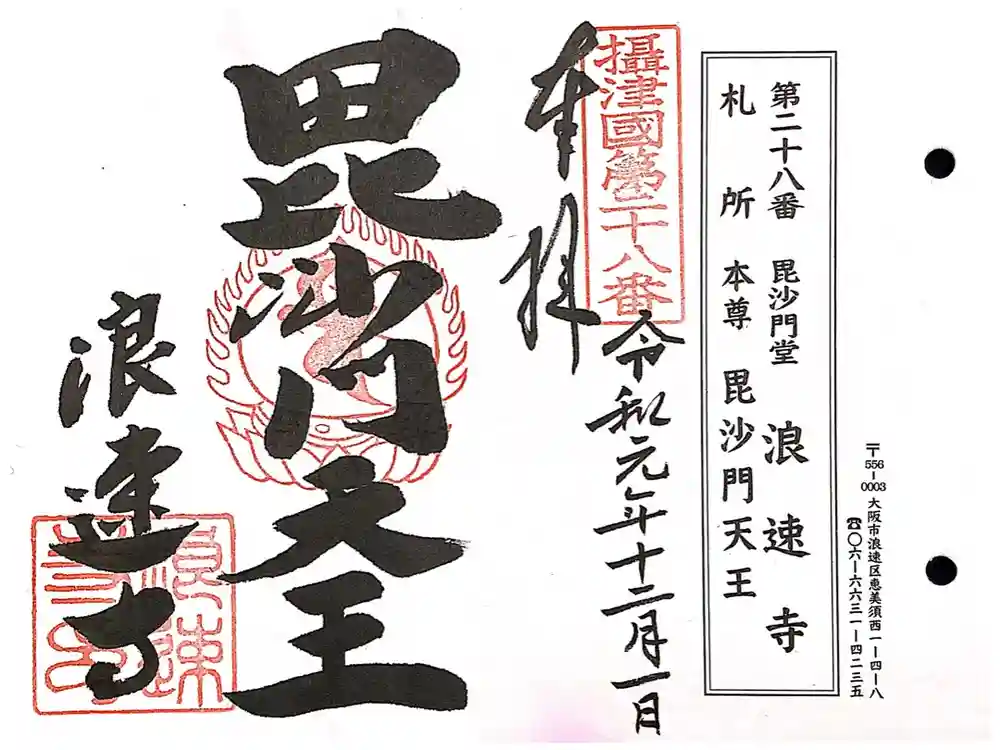 〒556-0003 大阪市浪速区恵美須西一-四-八
☎〇六-六六三一-四二三五
第二十八番 毘沙門堂 浪速寺
札所 本尊 毘沙門天王
攝津國第二十八番
奉拝
令和元年十二月一日
毘沙門天王
浪速寺
浪速
寺印